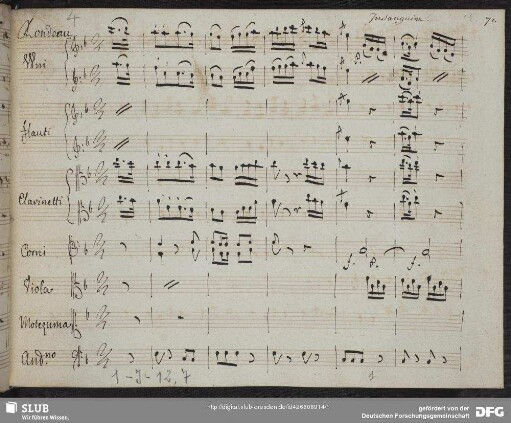 4
Rondeau
Insanguine
72.
VVni
Flauti
Clarinetti
Corni
Viola
Motezuma
And.no
f. p.
1-J-12,7
1
SLUB
Wir führen Wissen.
http://digital.slub-dresden.de/id426808914/1
gefördert von der
Deutschen Forschungsgemeinschaft
DFG